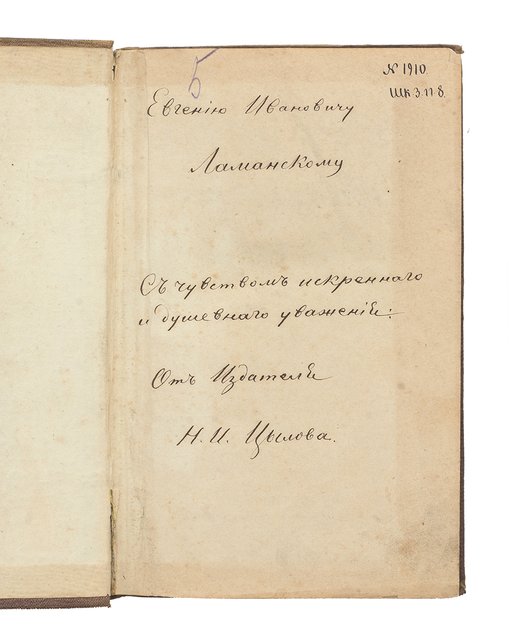 5
№ 1910.
Шк. 3. п 8.
Евгенію Ивановичу
Ламанскому
Съ чувствомъ искренняго
и душевнаго уваженія:
Отъ Издателя
Н. И. Цылова.